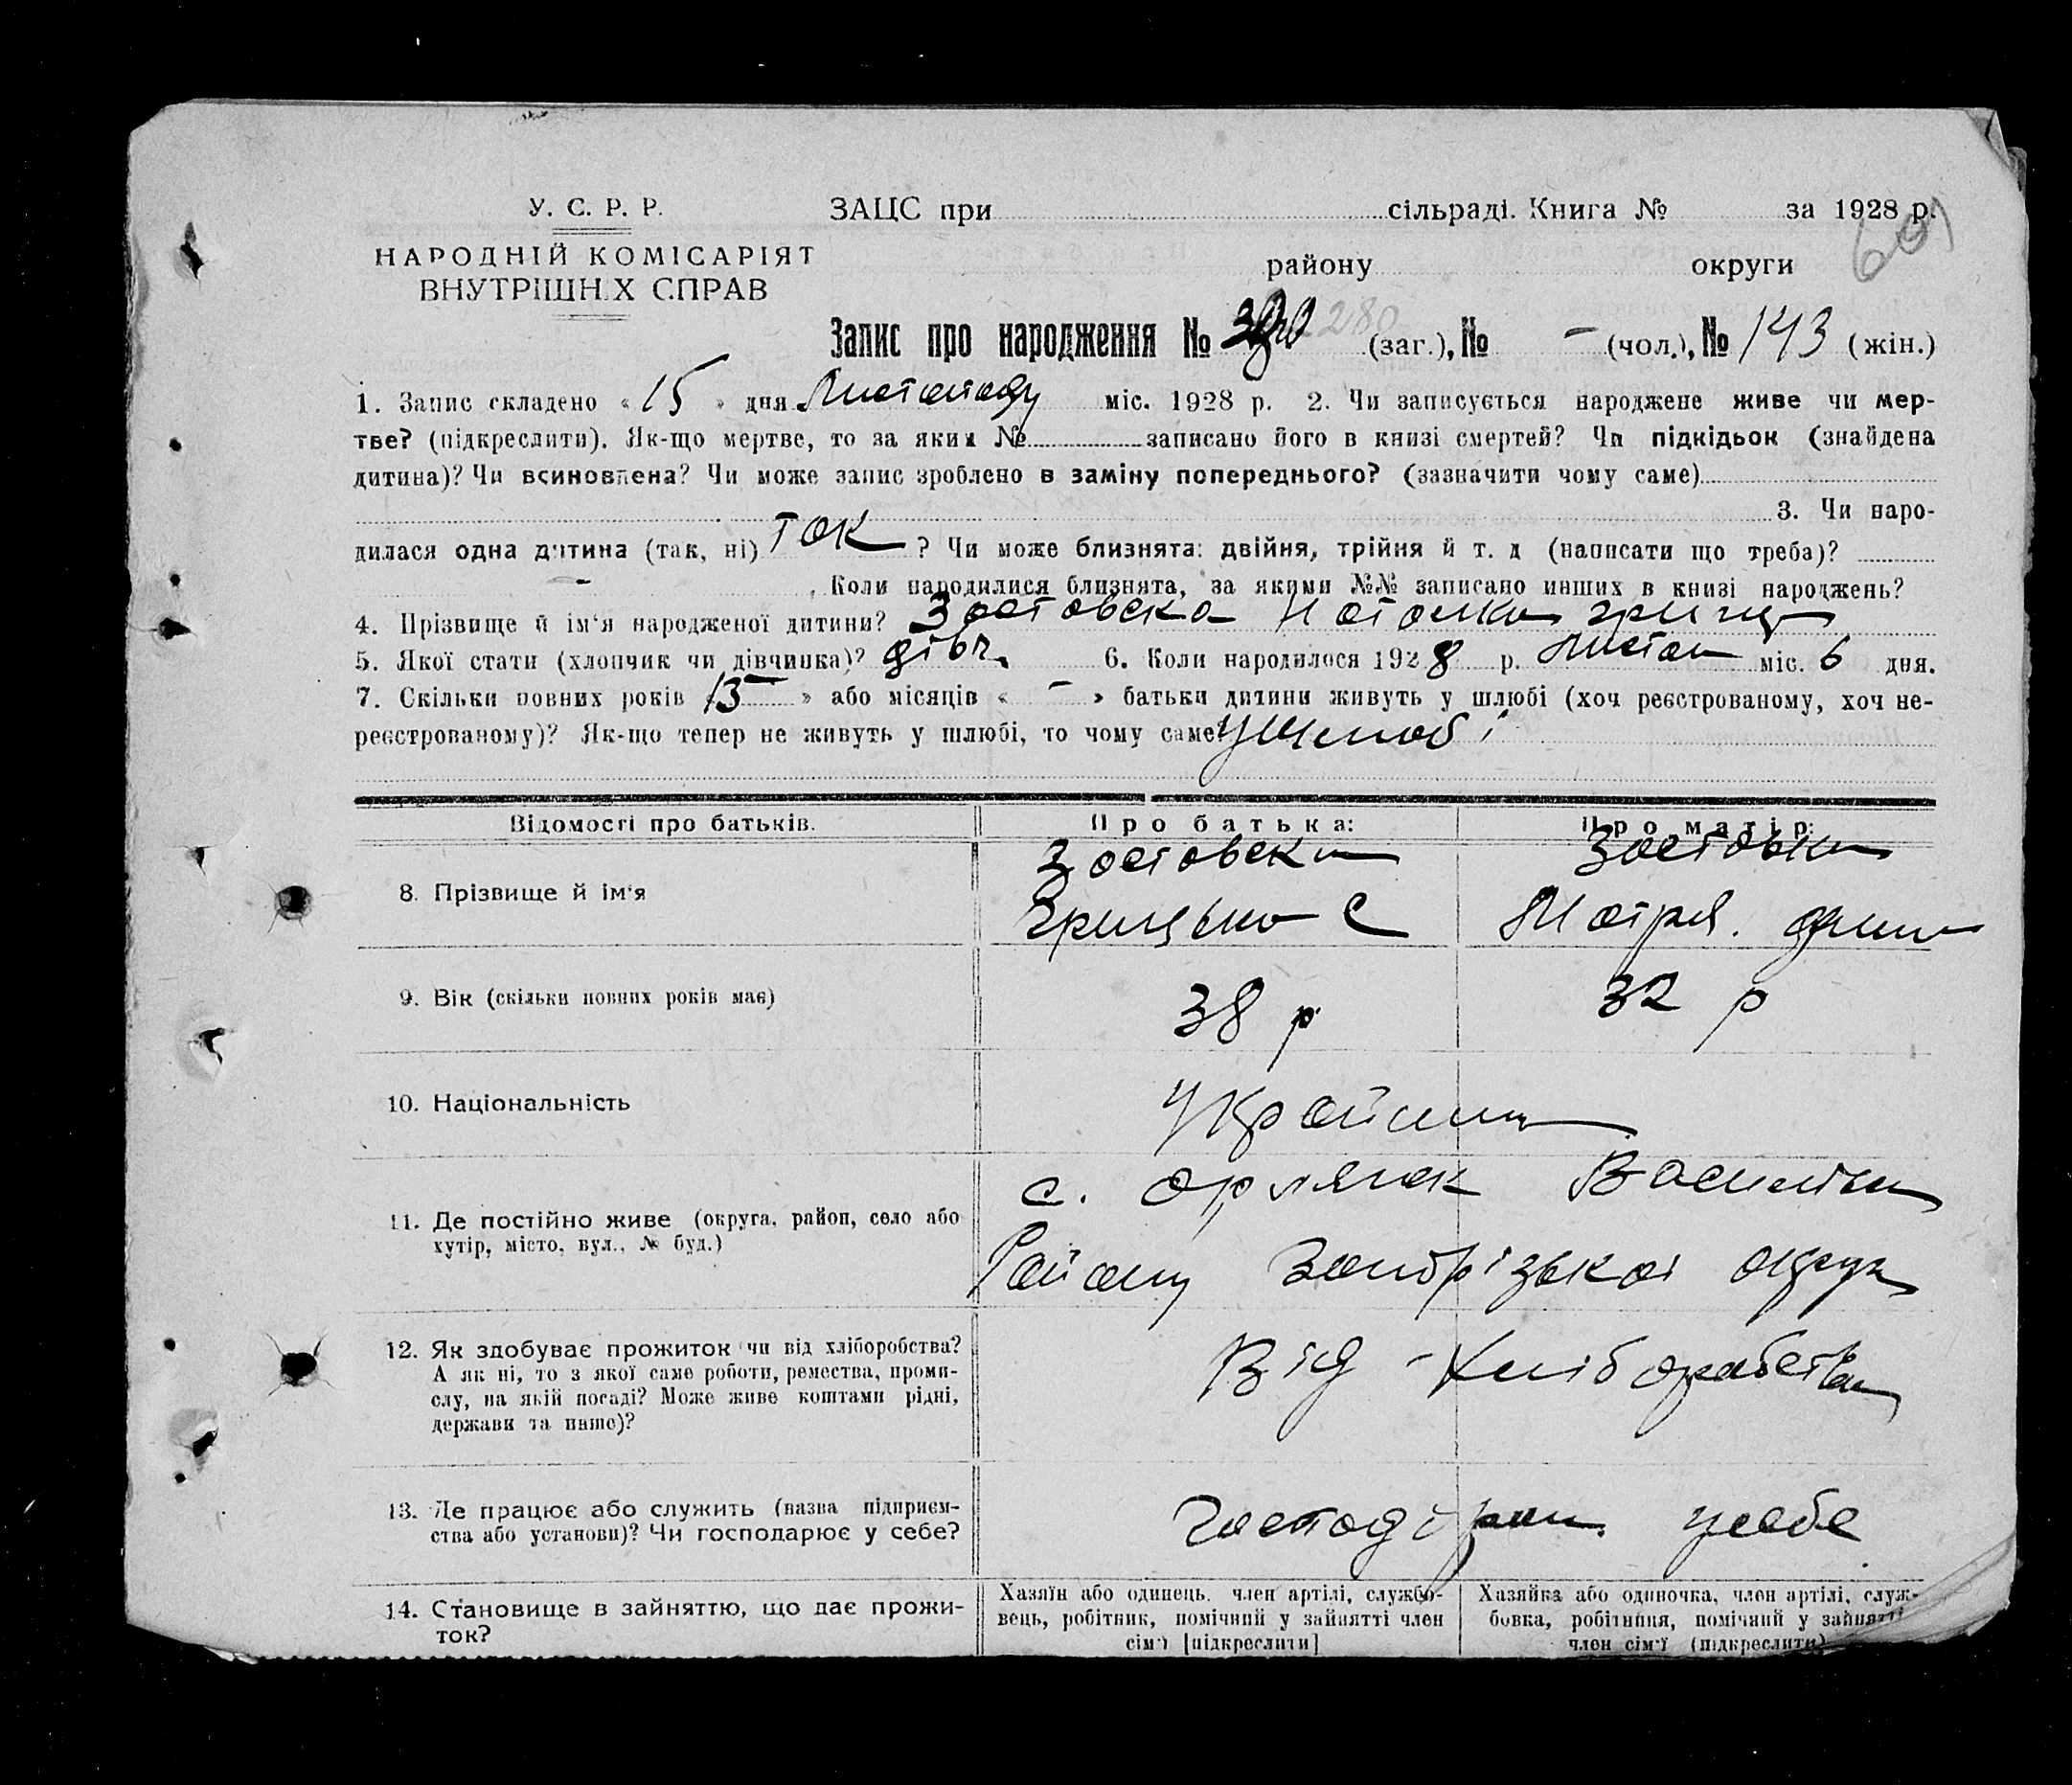 У. С. Р. Р.
ЗАЦС при сільраді. Книга № за 1928 р.
НАРОДНІЙ КОМІСАРІЯТ
ВНУТРІШНІХ СПРАВ
району округи
Запис про народження № 280 (заг.), № – (чол.), № 143 (жін.)
1. Запис складено « 15 » дня Листопаду міс. 1928 р. 2. Чи записується народжене живе чи мер-
тве? (підкреслити). Як-що мертве, то за яким № записано його в книзі смертей? Чи підкідьок (знайдена
дитина)? Чи всиновлена? Чи може запис зроблено в заміну попереднього? (зазначити чому саме)
3. Чи наро-
дилася одна дитина (так, ні) так ? Чи може близнята: двійня, трійня й т. д (написати що треба)?
– . Коли народилися близнята, за якими №№ записано инших в книзі народжень?
4. Прізвище й ім'я народженої дитини? Зостовська
5. Якої стати (хлопчик чи дівчинка)? дівч. 6. Коли народилося 1928 р. Листоп міс. 6 дня.
7. Скільки повних років « 13 » або місяців « – » батьки дитини живуть у шлюбі (хоч реєстрованому, хоч не-
реєстрованому)? Як-що тепер не живуть у шлюбі, то чому саме? у шлюбі
Відомості про батьків. Про батька: Про матір:
8. Прізвище й ім'я
Грицько С Мотря.
9. Вік (скільки повних років має) 38 р 32 р
10. Національність
11. Де постійно живе (округа, район, село або
хутір, місто, вул., № буд.)
с. Орлянск
Району округи
12. Як здобуває прожиток чи від хліборобства?
А як ні, то з якої саме роботи, ремества, проми-
слу, на якій посаді? Може живе коштами рідні,
держави та инше)?
Від - хліборобства
13. Де працює або служить (назва підприєм-
ства або установи)? Чи господарює у себе?
у себе
14. Становище в зайняттю, що дає прожи-
ток?
Хазяїн або одинець, член артілі, службо-
вець, робітник, помічний у зайнятті член
сім'ї [підкреслити]
Хазяйка або одиночка, член артілі, служ-
бовка, робітниця, помічний у зайнятті
член сім'ї (підкреслити)